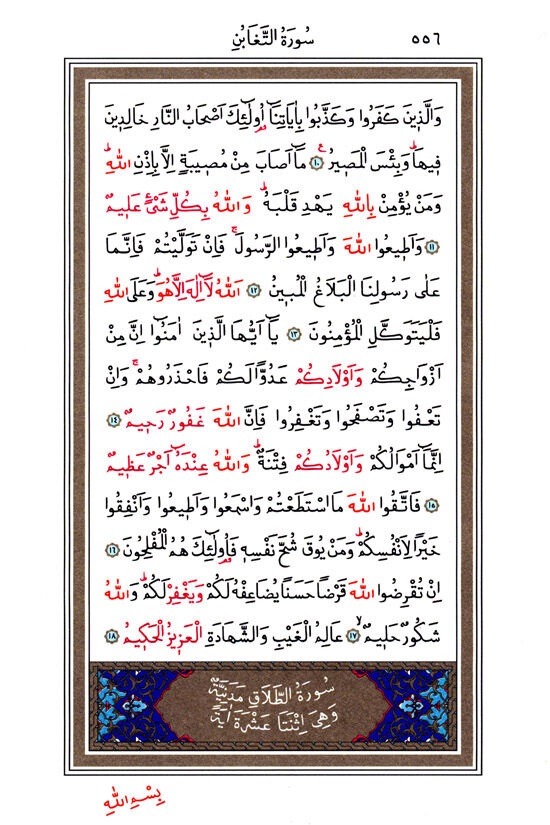 سُورَةُ التَّغَابُنِ ٥٥٦
وَالَّذِينَ كَفَرُوا وَكَذَّبُوا بِاٰيَاتِنَٓا اُو۬لٰٓئِكَ اَصْحَابُ النَّارِ خَالِدِينَ
فِيهَاۜ وَبِئْسَ الْمَصِيرُ۟ ﴿١٠﴾ مَٓا اَصَابَ مِنْ مُصِيبَةٍ اِلَّا بِاِذْنِ اللّٰهِۜ
وَمَنْ يُؤْمِنْ بِاللّٰهِ يَهْدِ قَلْبَهُۜ وَاللّٰهُ بِكُلِّ شَيْءٍ عَلِيمٌ
﴿١١﴾ وَاَطِيعُوا اللّٰهَ وَاَطِيعُوا الرَّسُولَۚ فَاِنْ تَوَلَّيْتُمْ فَاِنَّمَا
عَلٰى رَسُولِنَا الْبَلَاغُ الْمُبِينُ ﴿١٢﴾ اَللّٰهُ لَٓا اِلٰهَ اِلَّا هُوَۜ وَعَلَى اللّٰهِ
فَلْيَتَوَكَّلِ الْمُؤْمِنُونَ ﴿١٣﴾ يَٓا اَيُّهَا الَّذِينَ اٰمَنُٓوا اِنَّ مِنْ
اَزْوَاجِكُمْ وَاَوْلَادِكُمْ عَدُوًّا لَكُمْ فَاحْذَرُوهُمْۚ وَاِنْ
تَعْفُوا وَتَصْفَحُوا وَتَغْفِرُوا فَاِنَّ اللّٰهَ غَفُورٌ رَحِيمٌ ﴿١٤﴾
اِنَّمَٓا اَمْوَالُكُمْ وَاَوْلَادُكُمْ فِتْنَةٌۜ وَاللّٰهُ عِنْدَهُٓ اَجْرٌ عَظِيمٌ
﴿١٥﴾ فَاتَّقُوا اللّٰهَ مَا اسْتَطَعْتُمْ وَاسْمَعُوا وَاَطِيعُوا وَاَنْفِقُوا
خَيْرًا لِاَنْفُسِكُمْۜ وَمَنْ يُوقَ شُحَّ نَفْسِهِ فَاُو۬لٰٓئِكَ هُمُ الْمُفْلِحُونَ ﴿١٦﴾
اِنْ تُقْرِضُوا اللّٰهَ قَرْضًا حَسَنًا يُضَاعِفْهُ لَكُمْ وَيَغْفِرْ لَكُمْۜ وَاللّٰهُ
شَكُورٌ حَلِيمٌۙ ﴿١٧﴾ عَالِمُ الْغَيْبِ وَالشَّهَادَةِ الْعَزِيزُ الْحَكِيمُ ﴿١٨﴾
سُورَةُ الطَّلَاقِ مَدَنِيَّةٌ
وَهِيَ اِثْنَتَا عَشْرَةَ اٰيَةً
بِسْمِ اللّٰهِ